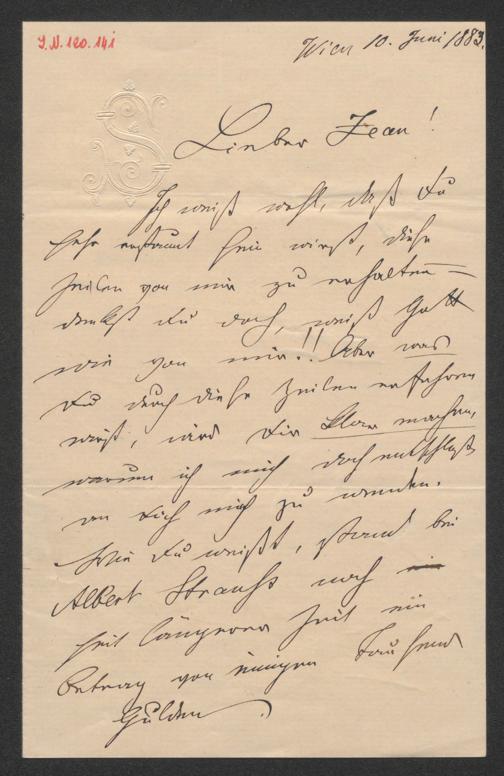 I.N. 120.141
Wien 10. Juni 1883.
S
Lieber Jean!
Ich weiß wohl, daß Du
sehr erstaunt sein wirst, diese
Zeilen von mir zu erhalten –
denkst Du doch, weiß Gott
wie von mir!! Aber was
Du durch diese Zeilen erfahren
wirst, wird Dir klar machen,
warum ich mich doch entschloß
an Dich mich zu wenden.
Wie Du weißt, stand bei
Albert Strauss noch
seit längerer Zeit ein
Betrag von einigen Tausend
Gulden